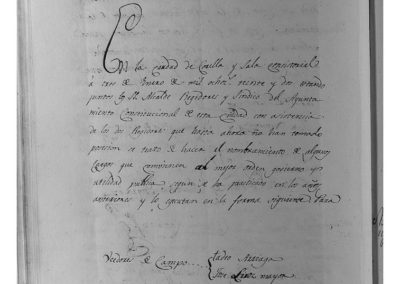 En la ciudad de Corella y Sala consistorial
à tres de Enero de mil ochos. treinta y dos estando
juntos los SS. Alcalde Regidores y Sindico del Ayunta
miento Constitucional de esta Ciudad con asistencia
de los dos Regidores que hasta ahora no han tomado
posesion se trato de hacer el nombramiento de algunos
Cargos que convienen al mejor orden gobierno y
utilidad publica segun se ha practicado en los años
anteriores y lo ejecutan en la forma siguiente Para
Veedores de Campo Tadeo Arteaga
Jose mayor